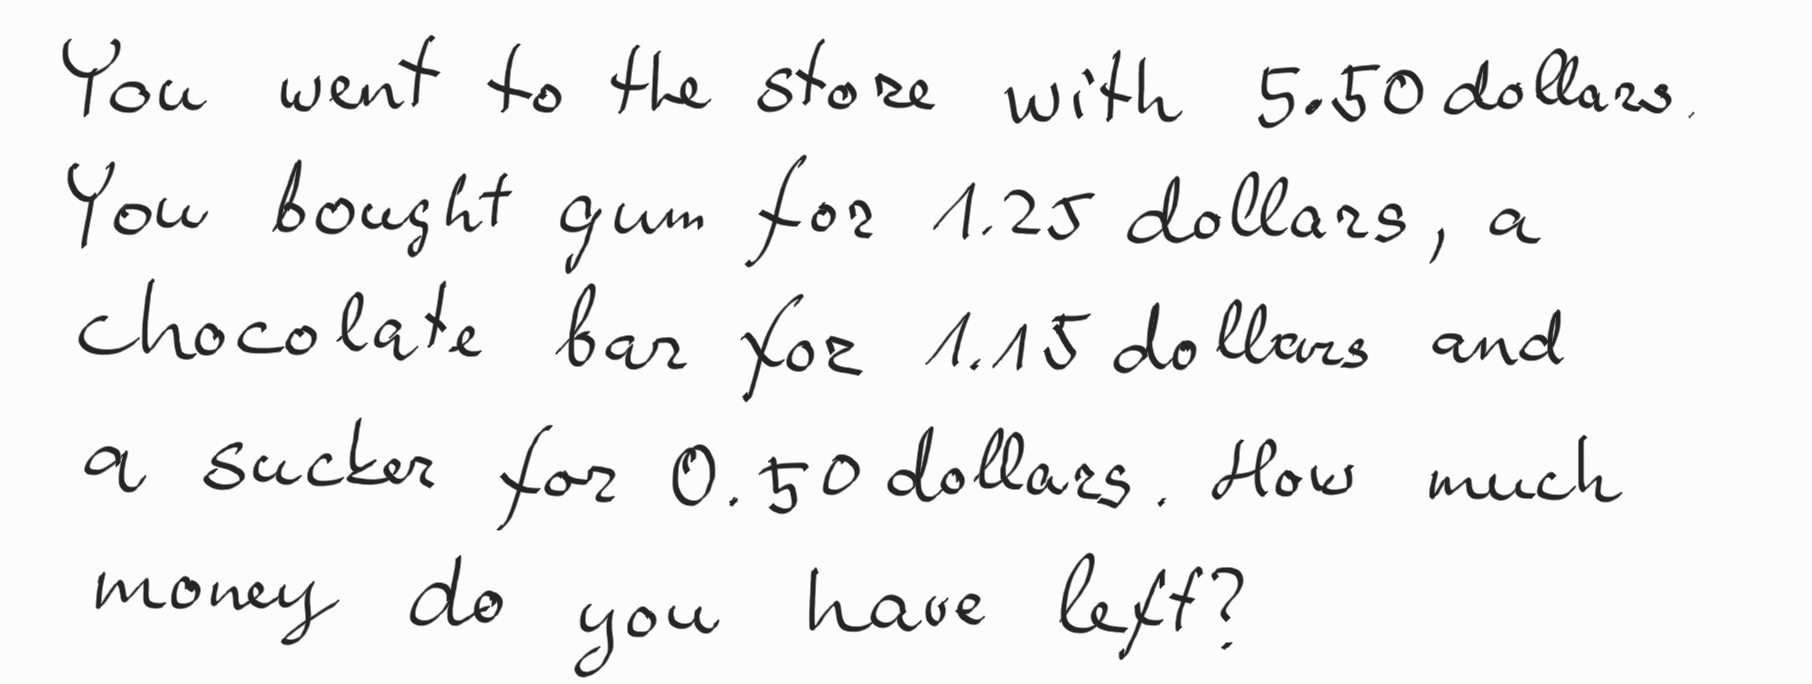 You went to the store with 5.50 dollars.
You bought gum for 1.25 dollars, a
chocolate bar for 1.15 dollars and
a sucker for 0.50 dollars. How much
money do you have left?